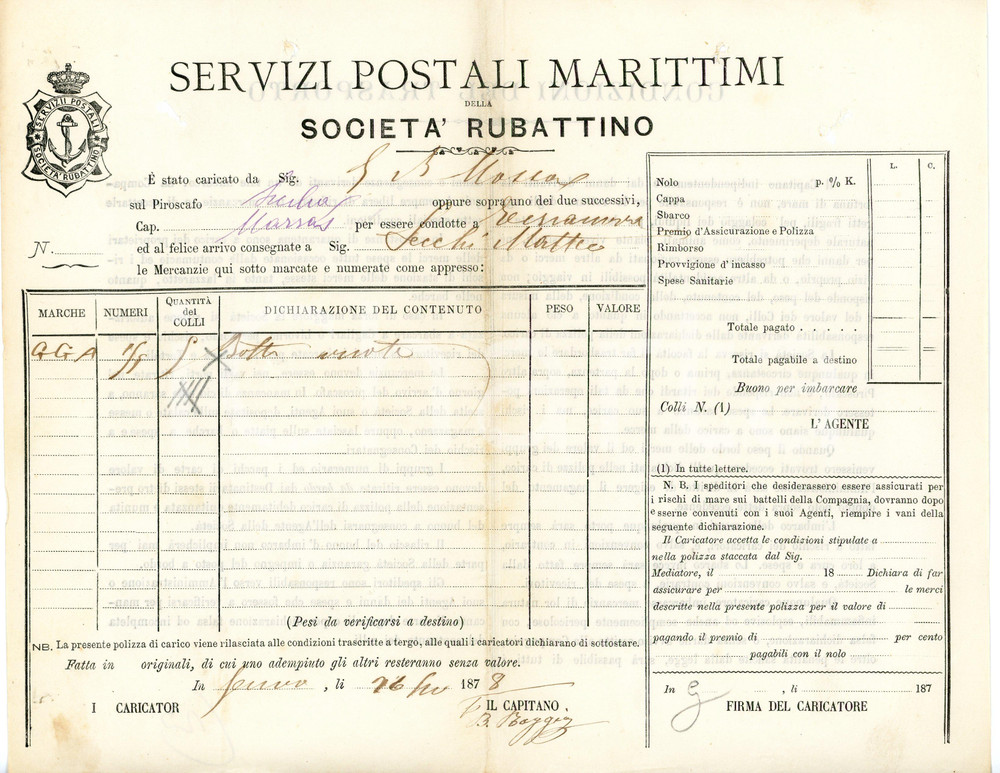 SERVIZI POSTALI MARITTIMI
DELLA
SOCIETA' RUBATTINO
SERVIZII POSTALI
SOCIETA' RUBATTINO
È stato caricato da Sig. G B
sul Piroscafo Sicilia oppure sopra uno dei due successivi,
Cap. Marras per essere condotte a Terranova
N.
ed al felice arrivo consegnate a Sig. Secchi Matteo
le Mercanzie qui sotto marcate e numerate come appresso:
MARCHE NUMERI QUANTITÀ dei COLLI DICHIARAZIONE DEL CONTENUTO PESO VALORE
GGA 1/5 5 Botti vuote
(Pesi da verificarsi a destino)
NB. La presente polizza di carico viene rilasciata alle condizioni trascritte a tergo, alle quali i caricatori dichiarano di sottostare.
Fatta in originali, di cui uno adempiuto gli altri resteranno senza valore.
In , li 26 1878
I CARICATOR IL CAPITANO
B.
L. C.
Nolo p. % K.
Cappa
Sbarco
Premio d'Assicurazione e Polizza
Rimborso
Provvigione d'incasso
Spese Sanitarie
Totale pagato . . . . .
Totale pagabile a destino
Buono per imbarcare
Colli N. (1)
L'AGENTE
(1) In tutte lettere.
N. B. I speditori che desiderassero essere assicurati per
i rischi di mare sui battelli della Compagnia, dovranno dopo
esserne convenuti con i suoi Agenti, riempire i vani della
seguente dichiarazione.
Il Caricatore accetta le condizioni stipulate a
nella polizza staccata dal Sig.
Mediatore, il 18 Dichiara di far
assicurare per le merci
descritte nella presente polizza per il valore di
pagando il premio di per cento
pagabili con il nolo
In G , li 187
FIRMA DEL CARICATORE